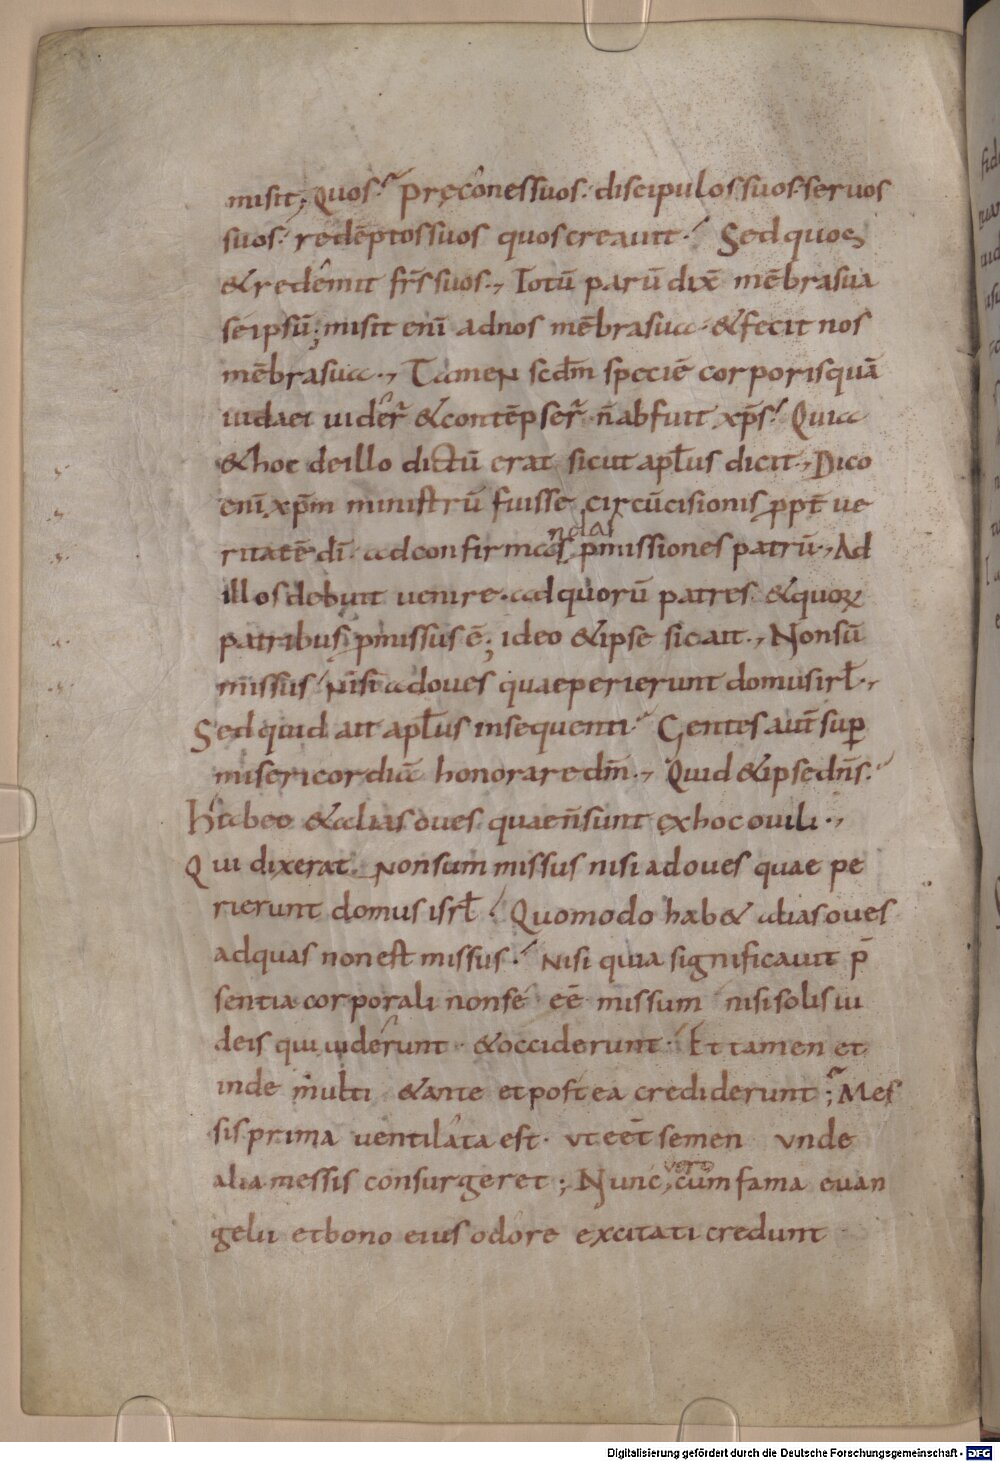 misit; Quos? pręcones suos. discipulos suos. seruos
suos. redēptos suos quos creauit. Sed quos
& redemit fr̄s suos., Totū parū dix̄ mēbra sua
se ipsū; misit enī ad nos mēbra sua. & fecit nos
mēbra sua., Tamen scd̄m speciē corporis quā
iudaei uider̄ & contēpser̄ n̄ abfuit xp̄s. Quia
& hoc de illo dictū erat sicut apl̄us dicit., Dico
enī xp̄m ministrū fuisse circūcisionis ꝓpt̄ ue
ritatē dī ad confirm
ꝓmissiones patrū., Ad
illos debuit uenire. ad quorū patres & quoꝝ
patribus ꝓmissus ē; ideo & ipse sic ait., Non sū
missus nisi ad oues quae perierunt domus isrl̄.,
Sed quid ait apl̄us in sequenti? Gentes aut̄ suꝑ
misericordia honorare dm̄., Quid & ipse dn̄s?
Habeo & alias oues quae n̄ sunt ex hoc ouili.,
Qui dixerat. Non sum missus nisi ad oues quae pe
rierunt domus isrl̄. Quomodo hab& alias oues
ad quas non est missus? Nisi quia significauit p̄
sentia corporali non se eē missum nisi solis iu
deis qui uiderunt. & occiderunt. Et tamen et
inde multi & ante et postea crediderunt; Mes
sis prima uentilata est. ut eēt semen unde
alia messis consurgeret; Nunc uero cūm fama euan
gelii et bono eius odore excitati credunt
Digitalisierung gefördert durch die Deutsche Forschungsgemeinschaft - DFG